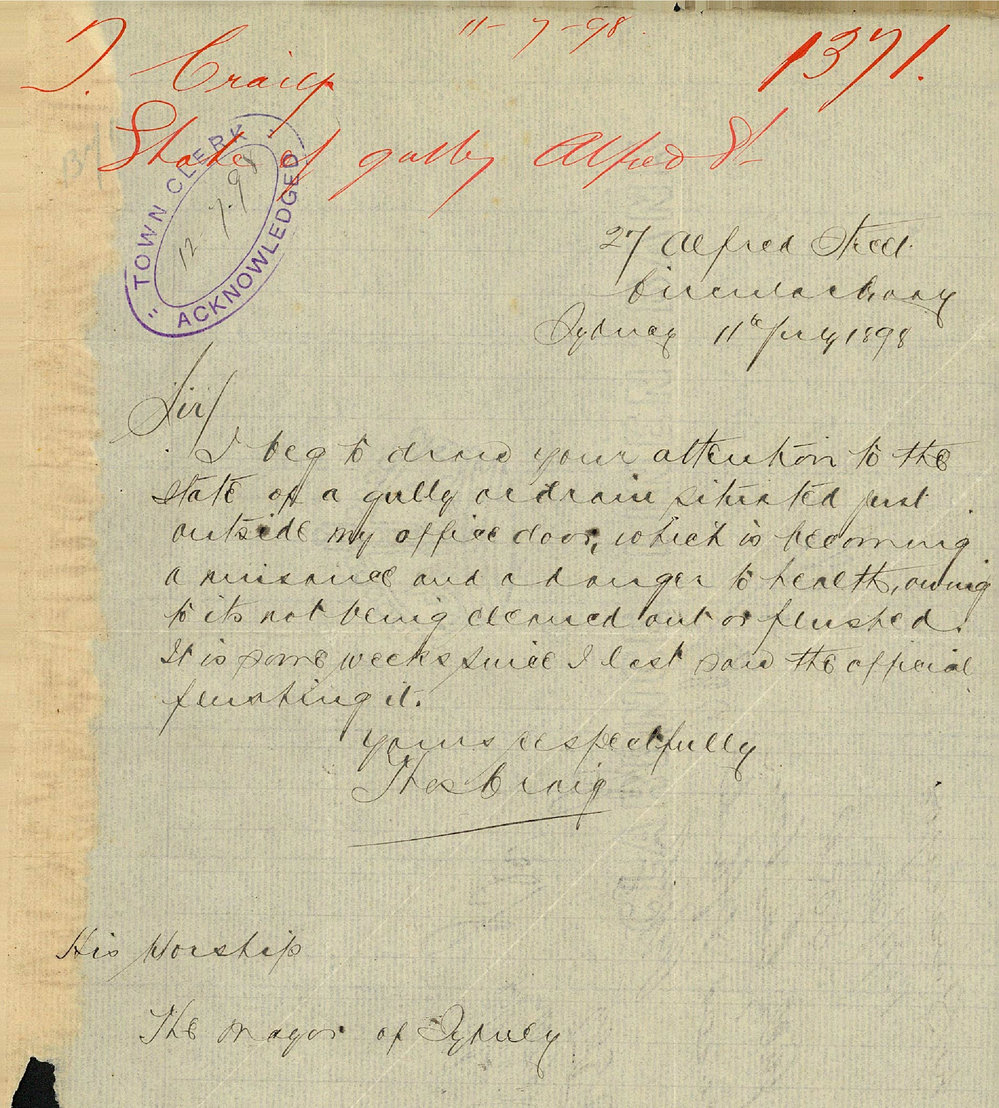 11-7-98.
T. Craig
1371.
State of gully Alfred St
"TOWN CLERK
12-7-98
ACKNOWLEDGED
27 Alfred Street
Circular Quay
Sydney 11th July 1898
Sir/
I beg to draw your attention to the
state of a gully or drain situated just
outside my office door, which is becoming
a nuisance and a danger to health, owing
to its not being cleaned out or flushed.
It is some weeks since I last saw the official
flushing it.
Yours respectfully
Thos Craig
His Worship
The Mayor of Sydney